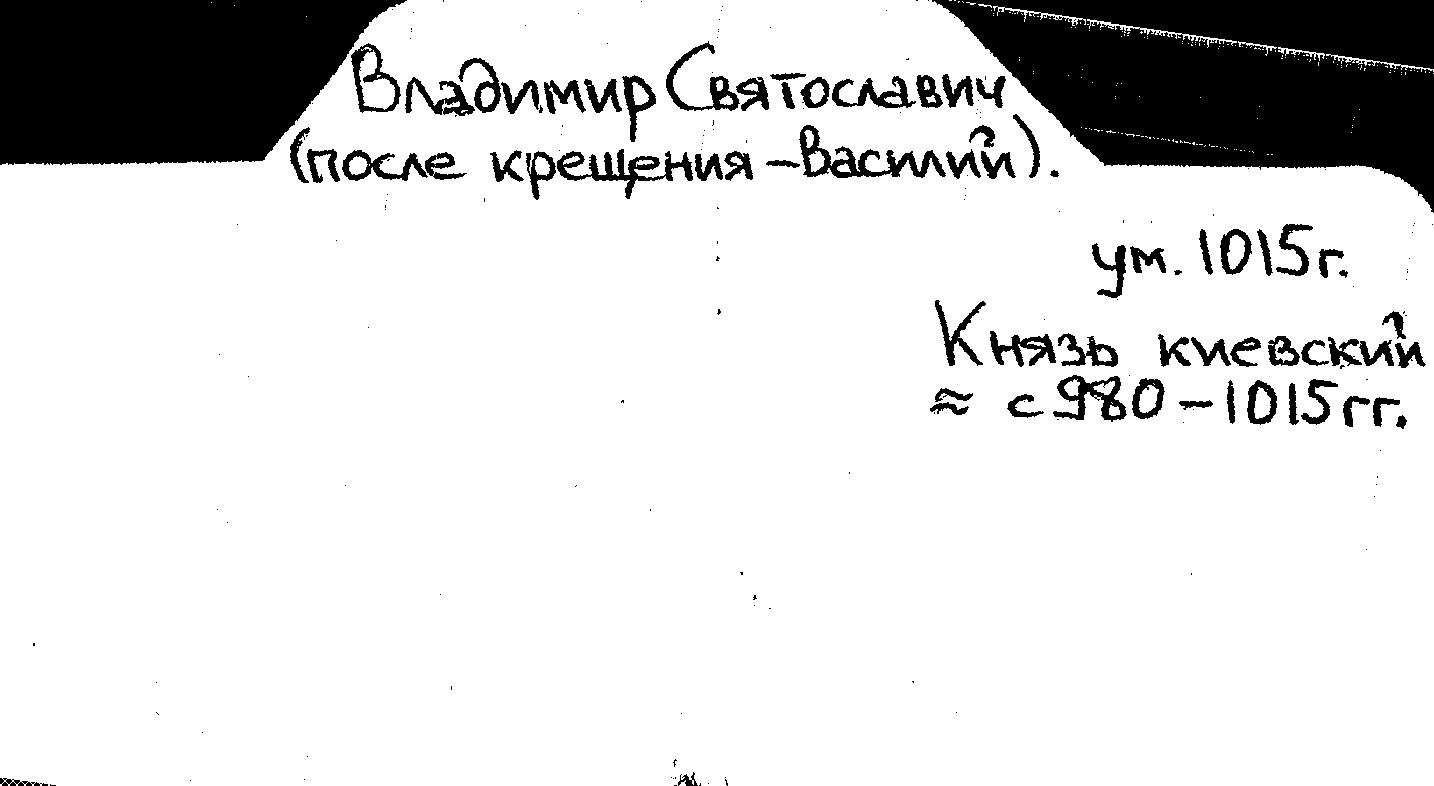 Владимир Святославич
(после крещения - Василий).
ум. 1015г.
Князь киевский
≈ с 980 - 1015 гг.